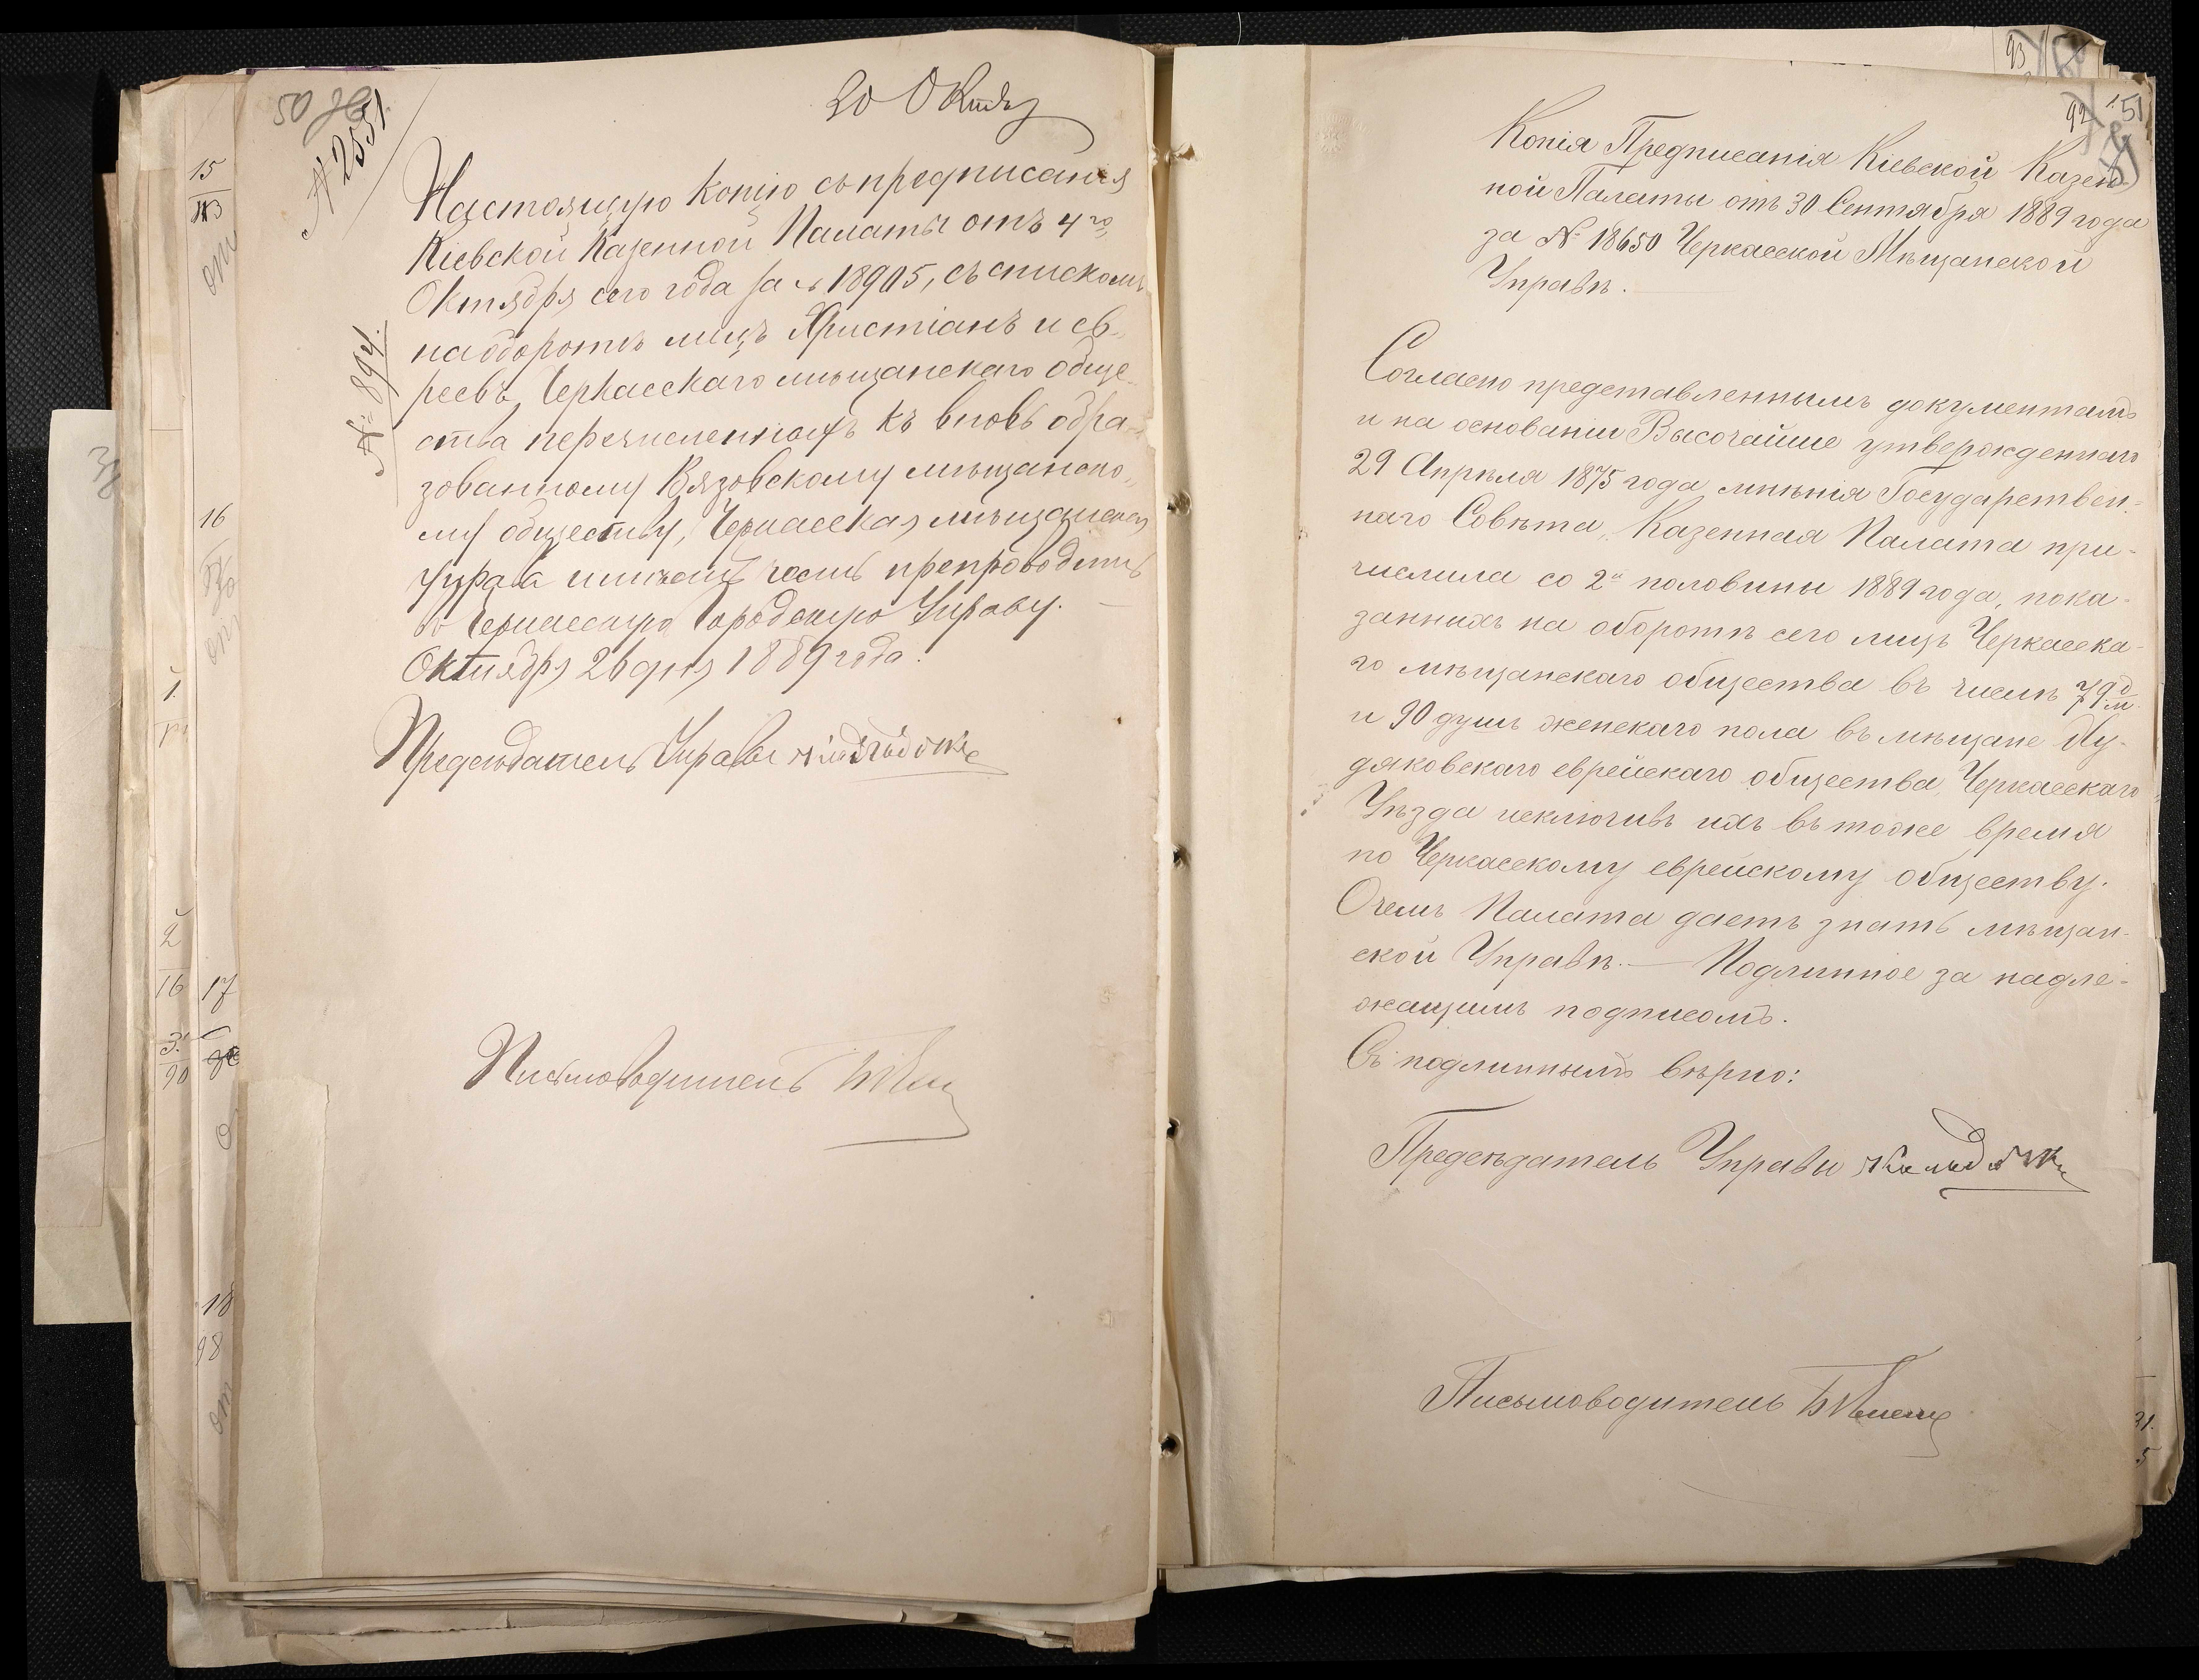 50
№ 2551.
20 Октяб
№ 894.
Настоящую копію съ предписанія
Кіевской Казенной Палаты отъ 4го
Октября сего года за № 18905, съ спискомъ
на оборотѣ лицъ Христіанъ и ев-
реевъ, Черкасскаго мѣщанскаго обще-
ства перечисленныхъ къ вновь обра-
зованному Вязовскому мѣщанско-
му обществу, Черкасская мѣщанская
управа имѣетъ честь препроводить
въ Черкасскую Городскую Управу. —
Октября 26 дня 1889 года.
Предсѣдатель Управы
Письмоводитель
15
16
17
18
98
16
90
93
92
51
Копія Предписанія Кіевской Казен-
ной Палаты отъ 30 Сентября 1889 года
за № 18650 Черкасской Мѣщанской
Управѣ.
Согласно представленнымъ документамъ
и на основаніи Высочайше утвержденнаго
29 Апрѣля 1875 года мнѣнія Государствен-
наго Совѣта, Казенная Палата при-
числила со 2й половины 1889 года, пока-
занныхъ на оборотѣ сего лицъ Черкасска-
го мѣщанскаго общества въ числѣ 79 д. м.
и 90 душъ женскаго пола въ мѣщане Ху-
дяковскаго еврейскаго общества, Черкасскаго
Уѣзда исключивъ ихъ въ тоже время
по Черкасскому еврейскому обществу.
О чемъ Палата даетъ знать мѣщан-
ской Управѣ. — Подлинное за надле-
жащимъ подписомъ.
Съ подлиннымъ вѣрно:
Предсѣдатель Управы
Письмоводитель